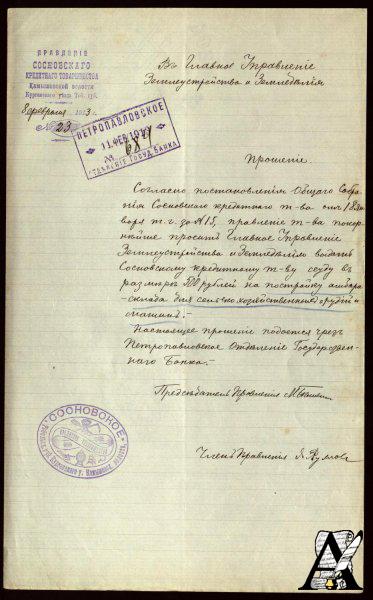 ПРАВЛЕНІЕ
СОСНОВСКАГО
КРЕДИТНАГО ТОВАРИЩЕСТВА
Камышинской волости
Курганскаго уѣзда Тоб. губ.
8 февраля 1913 г.
№ 23
ПЕТРОПАВЛОВСКОЕ
11 ФЕВ. 1913
№ 6871
ОТДѢЛЕНІЕ ГОСУД. БАНКА
Въ Главное Управленіе
Землеустройства и Земледѣлія
Прошеніе.
Согласно постановленія Общаго Собра-
нія Сосновскаго кредитнаго т-ва отъ 18 Ян-
варя т. г. за № 15, правленіе т-ва покор-
нѣйше проситъ Главное Управленіе
Землеустройства и Земледѣлія выдать
Сосновскому кредитному т-ву ссуду въ
размѣрѣ рублей на постройку амбара
-склада для сельско-хозяйственныхъ орудій и
машинъ.-
Настоящее прошеніе подается чрезъ
Петропавловское Отдѣленіе Государствен-
наго Банка.-
Предсѣдатель Правленія
Членъ Правленія
СОСНОВСКОЕ
КРЕДИТНОЕ